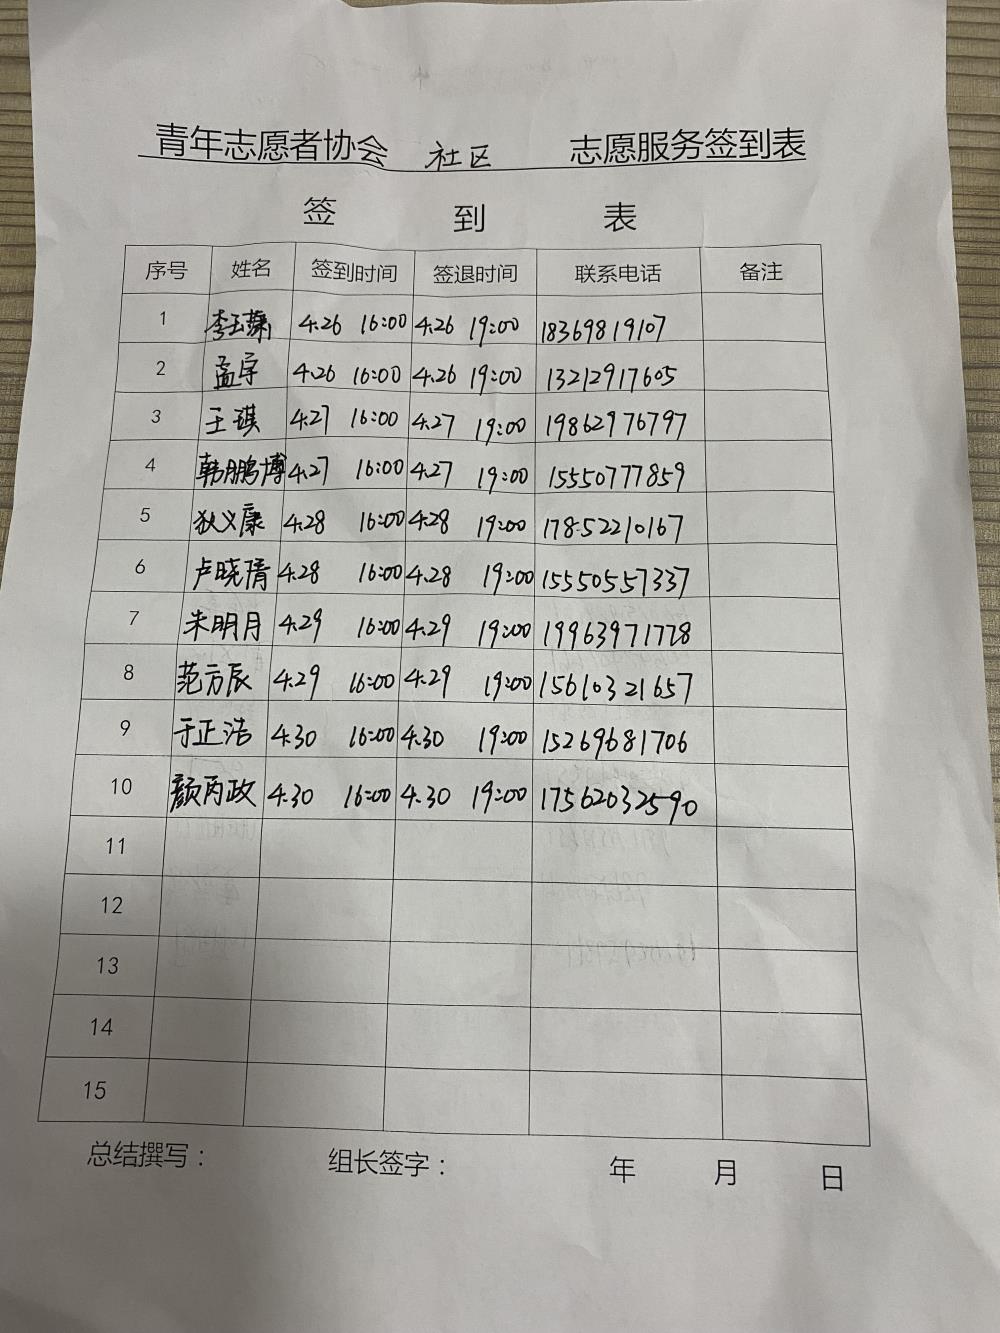 青年志愿者协会 社区 志愿服务签到表
签 到 表
序号 姓名 签到时间 签退时间 联系电话 备注
1 李玉蘋 4.26 16:00 4.26 19:00 18369819107
2 孟宇 4.26 16:00 4.26 19:00 13212917605
3 王琪 4.27 16:00 4.27 19:00 19862976797
4 韩鹏博 4.27 16:00 4.27 19:00 15550777859
5 狄义康 4.28 16:00 4.28 19:00 17852210167
6 卢晓倩 4.28 16:00 4.28 19:00 15550557337
7 朱明月 4.29 16:00 4.29 19:00 19963971778
8 范方辰 4.29 16:00 4.29 19:00 15610321657
9 于正浩 4.30 16:00 4.30 19:00 15269681706
10 颜丙政 4.30 16:00 4.30 19:00 17562032590
11
12
13
14
15
总结撰写： 组长签字： 年 月 日